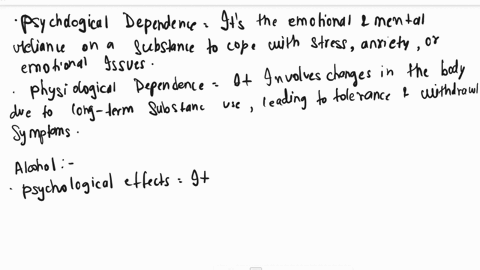 · Psychological Dependence = It's the emotional & mental
reliance on a substance to cope with stress, anxiety, or
emotional Issues.
· Physiological Dependence = It Involves changes in the body
due to long-term substanc use, leading to tolerance & withdrawl
Symptoms.
Alcohol :-
· Psychological effects = It